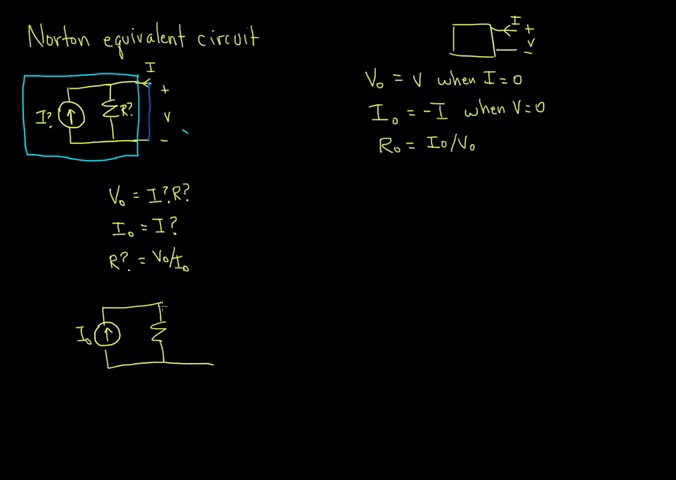 Norton equivalent circuit
I
+
I?
R?
V
-
V₀ = I?R?
I₀ = I?
R? = V₀/I₀
I₀
I
+
V
-
V₀ = V when I=0
I₀ = -I when V=0
R₀ = I₀/V₀